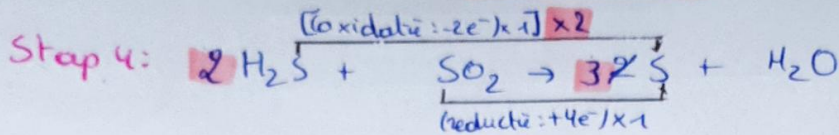 [(oxidatie: -2e⁻) x 1] x2
Stap 4: 2 H₂S + SO₂ → 3 2 S + H₂O
(reductie: +4e⁻) x 1